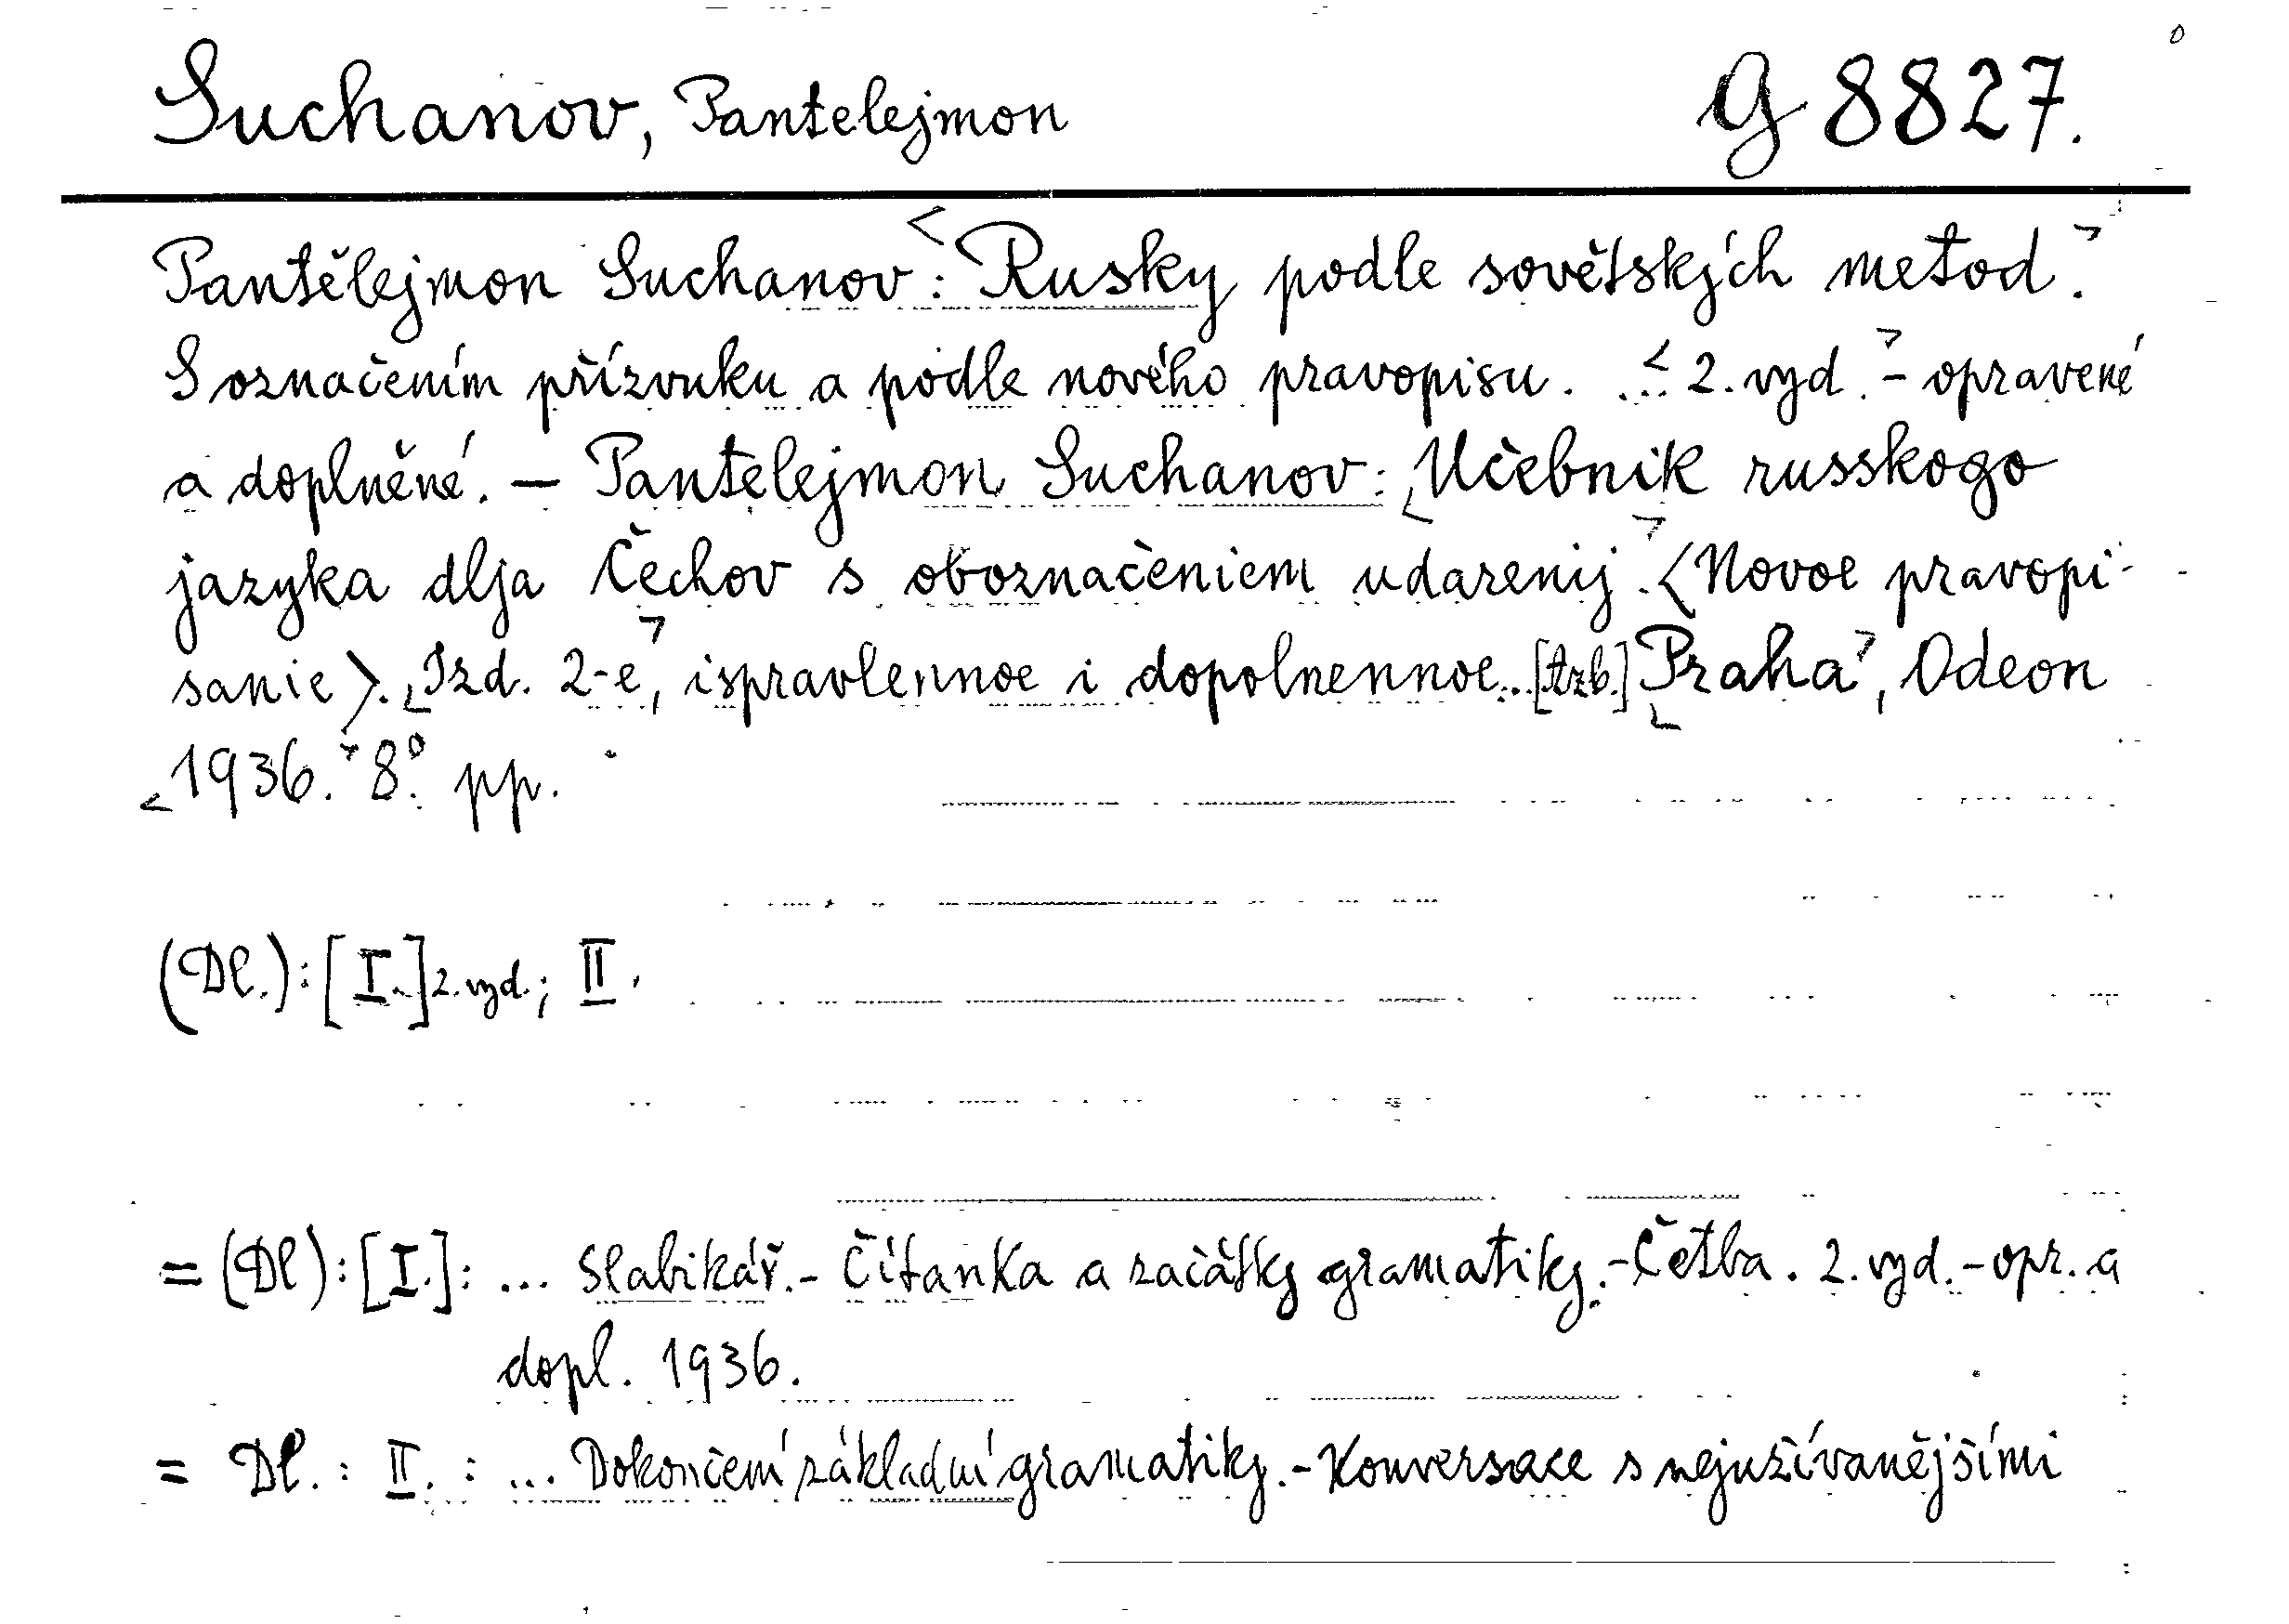 Suchanov, Pantelejmon G 8827.
Pantělejmon Suchanov: <Rusky podle sovětských metod.>
S označením přízvuku a podle nového pravopisu. ... <2. vyd.> - opravené
a doplněné. — Pantelejmon Suchanov: <Učebnik russkogo
jazyka dlja Čechov s oboznačeniem udarenij.> <Novoe pravopi-
sanie>. <Izd. 2-e>, ispravlennoe i dopolnennoe... [Azb.] <Praha>, Odeon
<1936.> 8°. pp.
(Dl.): [I.] 2. vyd.; II.
= (Dl): [I.]: ... Slabikář. - Čítanka a začátky gramatiky. - Četba. 2. vyd. - opr. a
dopl. 1936.
= Dl. : II. : ... Dokončení základní gramatiky. - Konversace s nejužívanějšími